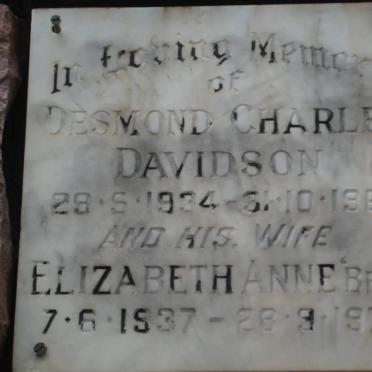 In Loving Memor
of
DESMOND CHARLE
DAVIDSON
28·5·1934 - 31·10·19
AND HIS WIFE
ELIZABETH ANNE
7·6·1937 - 28·9·19